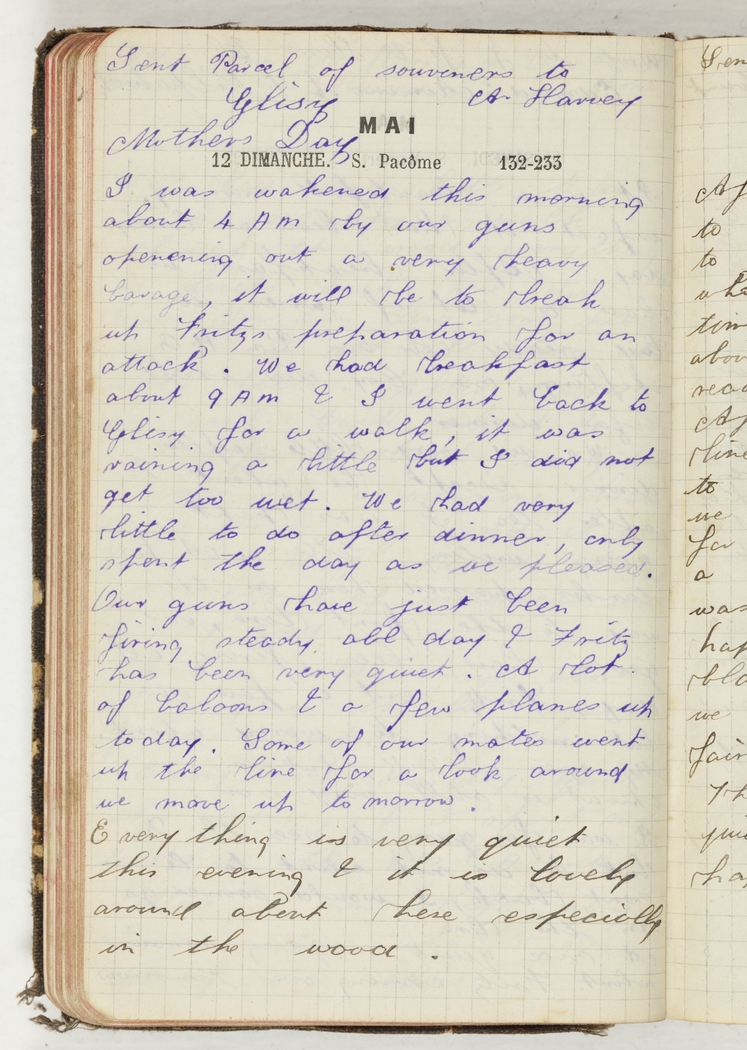 Sent Parcel of souveners to
Glisy A. Harvey
MAI
Mothers Day
12 DIMANCHE. S. Pacôme 132-233
I was wakened this morning
about 4 AM by our guns
openening out a very heavy
barage, it will be to break
up Fritzs preparation for an
attack. We had breakfast
about 9 AM & I went back to
Glisy for a walk, it was
raining a little but I did not
get too wet. We had very
little to do after dinner, only
spent the day as we pleased.
Our guns have just been
firing steady all day & Fritz
has been very quiet. A lot
of baloons & a few planes up
today. Some of our mates went
up the line for a look around
we move up tomorrow.
Everything is very quiet
this evening & it is lovely
around about here especially
in the wood.
to
to
we
for
a
was
we